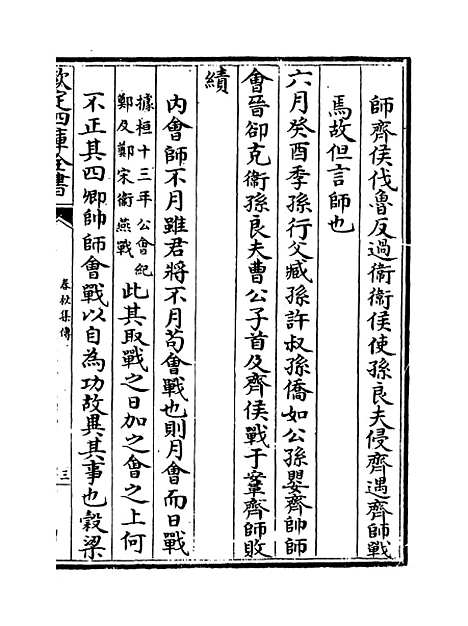 師齊侯伐魯反過衞衞侯使孫良夫侵齊遇齊師戰
焉故但言師也
六月癸酉季孫行父臧孫許叔孫僑如公孫嬰齊帥師
會晉郤克衞孫良夫曹公子首及齊侯戰于鞌齊師敗
績
内會師不月雖君將不月苟會戰也則月會而日戰
據桓十三年公會紀
鄭及鄭宋衞燕戰
此其取戰之日加之會之上何
不正其四卿帥師會戰以自為功故異其事也榖梁
欽定四庫全書
春秋集傳
三